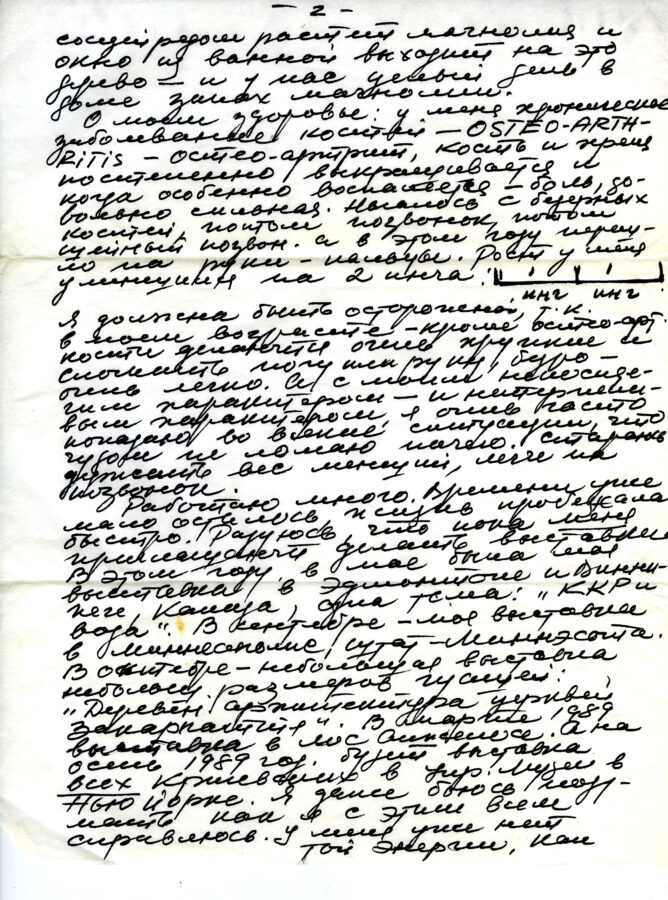 - 2 -
сосед рядом растет магнолия и
окно из ванной выходит на это
дерево – и у нас целый день в
доме запах магнолии.
О моем здоровье: у меня хроническое
заболевание костей – OSTEO-ARTH-
RITIS – остео-артрит, кость и хрящ
постепенно выкрашивается и
когда особенно воспаляется – боль, до-
вольно сильная. Началось с бедерных
костей, потом позвонок, потом
шейный позвон. а в этом году переш-
ло на руки – пальцы. Рост у меня
уменшился на 2 инча.
инч инч
Я должна быть осторожной, т. к.
в моем возрасте – кроме остео-арт.
кости делаются очень хрупкие и
сломать ногу или руку, бедро –
очень легко. А с моим непоседе-
чим характером – и нетерпели-
вым характером, я очень часто
попадаю во всякие ситуации, что
чудом не ломаю ничего. Стараюсь
держать вес меньший, легче на
позвонок.
Работаю много. Времени уже
мало осталось, жизнь пробежала
быстро. Радуюсь, что пока меня
приглашают делать выставки.
В этом году в мае была моя
выставка в Эдмонтоне и Винни-
пеге, Канада, одна тема: "ККРи
вода". В сентябре – моя выставка
в Миннеаполис, штат – Миннэсота.
В октябре – небольшая выставка
небольш. размеров гуашей:
"Деревян. архитектура церквей
Закарпаття". В марте 1989
выставка в Лос Анжелосе. А на
осень 1989 год. будет выставка
всех Кричевских в Укр. Музеи в
Нью Йорке. Я даже боюсь поду-
мать как я с этим всем
справлюсь. У меня уже нет
той энергии, как